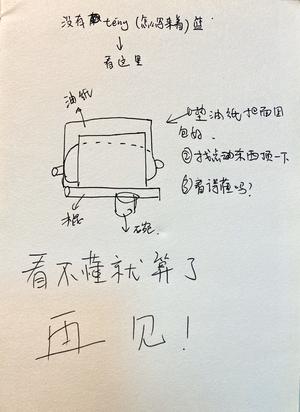 没有 téng (怎么写来着) 蓝
看这里
油纸
①垫油纸把面团
包好.
②找点动东西顶一下
③看得懂吗?
棍
石碗.
看不懂就算了
再见!